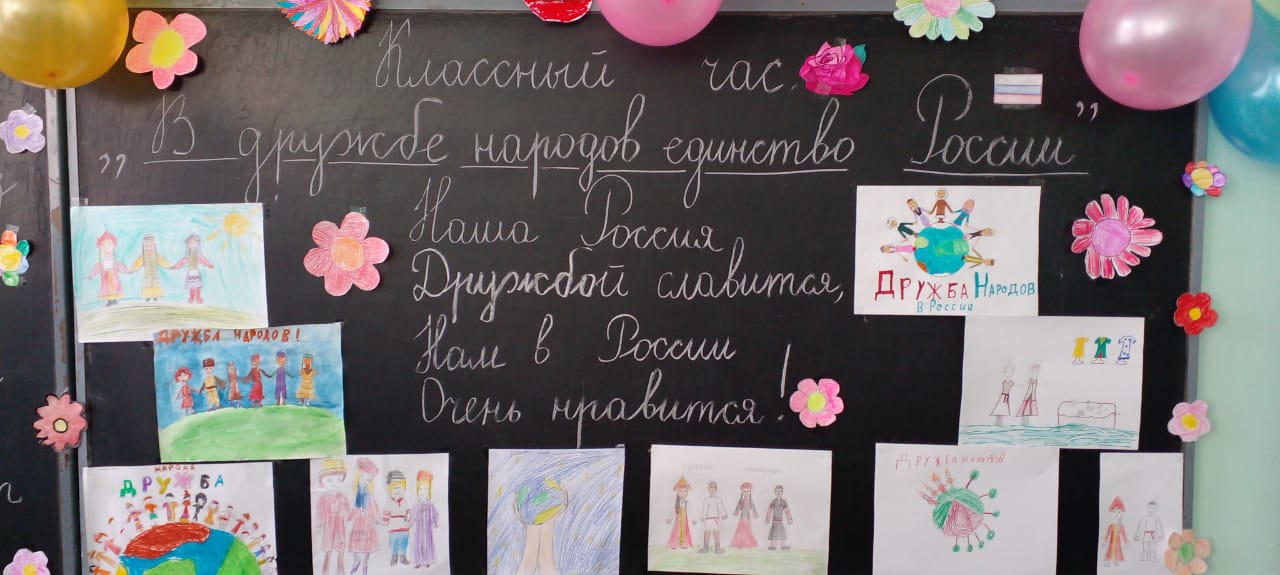 Классный час
„В дружбе народов единство России”
Наша Россия
Дружбой славится,
Нам в России
Очень нравится!
ДРУЖБА НАРОДОВ
В РОССИИ
ДРУЖБА НАРОДОВ!
НАРОДА
ДРУЖБА
ДРУЖБА НАРОДОВ